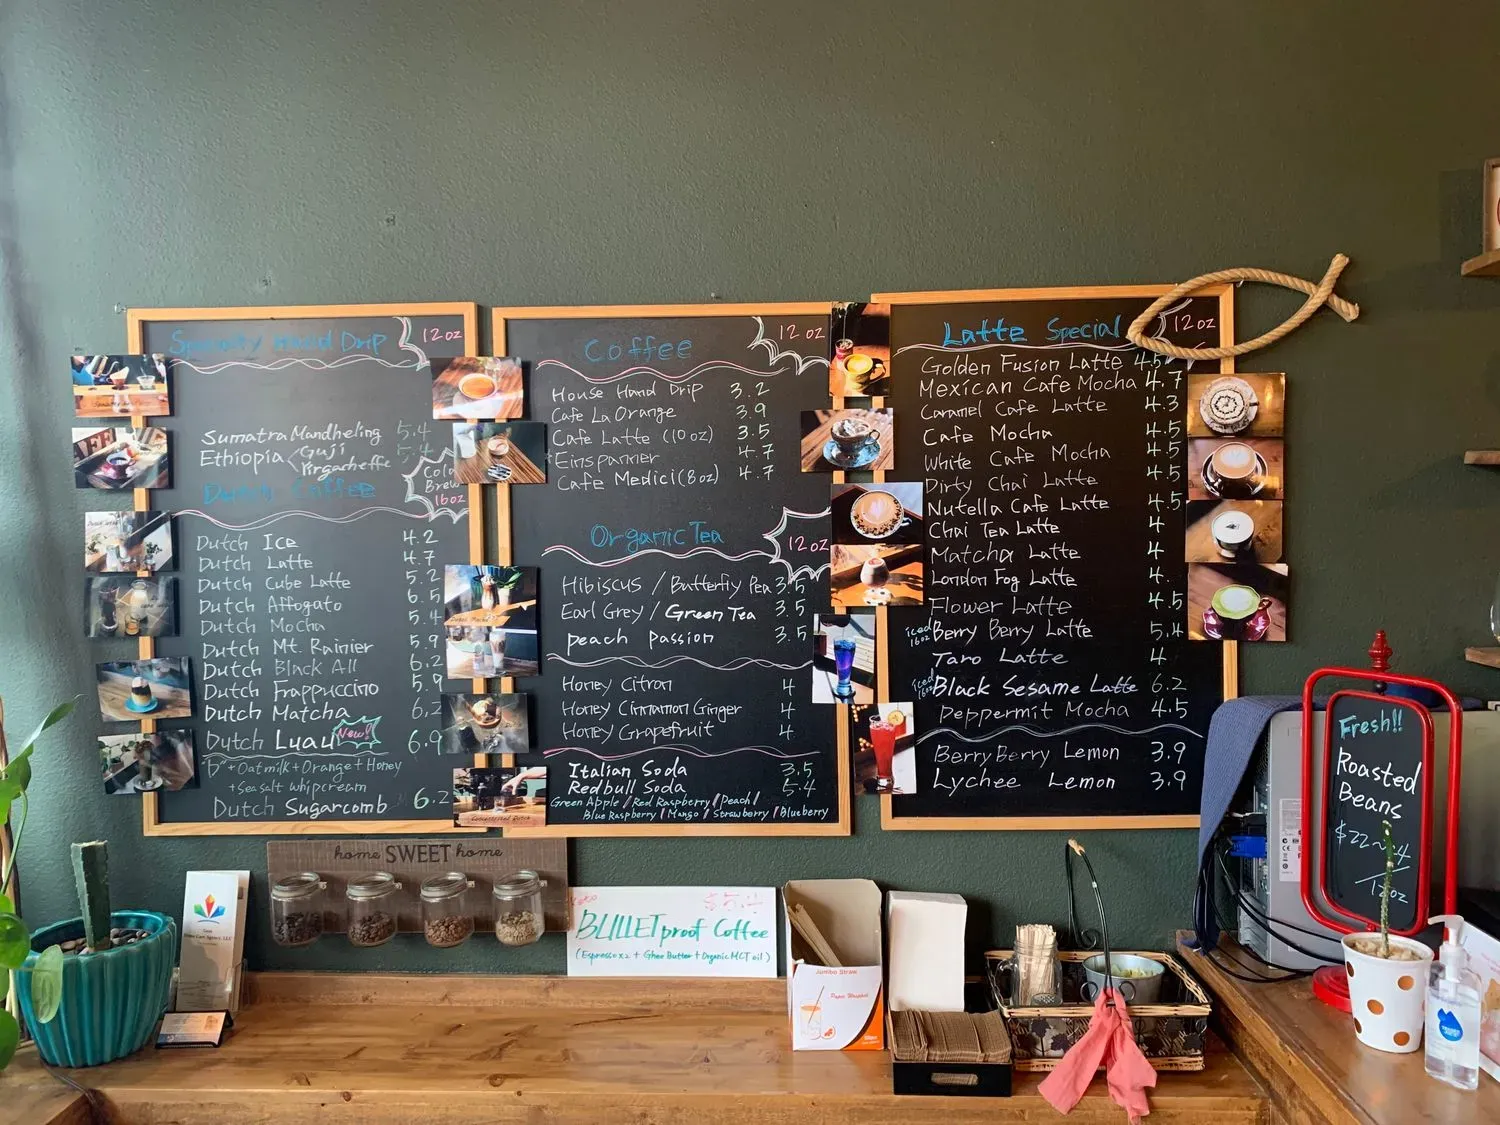 Specialty Hand Drip 12oz
Sumatra Mandheling 5.4
Ethiopia < Guji 5.4
Yirgacheffe
Dutch Coffee
Cold
Brew
16oz
Dutch Ice 4.2
Dutch Latte 4.7
Dutch Cube Latte 5.2
Dutch Affogato 6.5
Dutch Mocha 5.4
Dutch Mt. Rainier 5.9
Dutch Black All 6.2
Dutch Frappuccino 5.9
Dutch Matcha 6.2
Dutch Luau New! 6.9
"D"+Oatmilk+Orange+Honey
+Seasalt whipcream
Dutch Sugarcomb 6.2
Coffee 12oz
House Hand Drip 3.2
Cafe La Orange 3.9
Cafe Latte (10oz) 3.5
Einspanner 4.7
Cafe Medici (8oz) 4.7
Organic Tea 12oz
Hibiscus / Butterfly Pea 3.5
Earl Grey / Green Tea 3.5
peach passion 3.5
Honey Citron 4
Honey Cinnamon Ginger 4
Honey Grapefruit 4
Italian Soda 3.5
Redbull Soda 5.4
Green Apple / Red Raspberry / Peach /
Blue Raspberry / Mango / Strawberry / Blueberry
Latte Special 12oz
Golden Fusion Latte 4.5
Mexican Cafe Mocha 4.7
Caramel Cafe Latte 4.3
Cafe Mocha 4.5
White Cafe Mocha 4.5
Dirty Chai Latte 4.5
Nutella Cafe Latte 4.5
Chai Tea Latte 4
Matcha Latte 4
London Fog Latte 4.
Flower Latte 4.5
iced 16oz Berry Berry Latte 5.4
Taro Latte 4
iced 16oz Black Sesame Latte 6.2
Peppermit Mocha 4.5
Berry Berry Lemon 3.9
Lychee Lemon 3.9
home SWEET home
$5.4
BULLET proof Coffee
(Espresso x2 + Ghee Butter + Organic MCT oil)
Jumbo Straw
Paper Wrapped
Fresh!!
Roasted
Beans
$22~24
/12oz